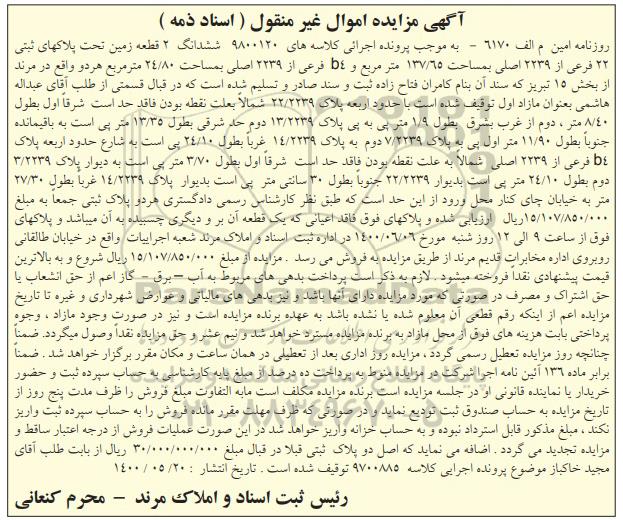 آگهی مزایده اموال غیر منقول ( اسناد ذمه )
روزنامه امین م الف ۶۱۷۰ - به موجب پرونده اجرائی کلاسه های ۹۸۰۰۱۲۰ ششدانگ ۲ قطعه زمین تحت پلاکهای ثبتی
۲۲ فرعی از ۲۲۳۹ اصلی بمساحت ۱۳۷/۶۵ متر مربع و b۴ فرعی از ۲۲۳۹ اصلی بمساحت ۲۴/۸۰ مترمربع هردو واقع در مرند
از بخش ۱۵ تبریز که سند آن بنام کامران فتاح زاده ثبت و سند صادر و تسلیم شده است که در قبال قسمتی از طلب آقای عبداله
هاشمی بعنوان مازاد اول توقیف شده است با حدود اربعه پلاک ۲۲/۲۲۳۹ شمالاً بعلت نقطه بودن فاقد حد است شرقا اول بطول
۸/۴۰ متر ، دوم از غرب بشرق بطول ۱/۹ متر پی به پی پلاک ۱۳/۲۲۳۹ دوم حد شرقی بطول ۱۳/۳۵ متر پی است به باقیمانده
جنوباً بطول ۱۱/۹۰ متر اول پی به پلاک ۷/۲۲۳۹ دوم به پلاک ۱۴/۲۲۳۹ غرباً بطول ۲۴/۱۰ پی است به شارع حدود اربعه پلاک
b۴ فرعی از ۲۲۳۹ اصلی شمالاً به علت نقطه بودن فاقد حد است شرقا اول بطول ۳/۷۰ متر پی است به دیوار پلاک ۳/۲۲۳۹
دوم بطول ۲۴/۱۰ متر پی است بدیوار ۲۲/۲۲۳۹ جنوباً بطول ۳۰ سانتی متر پی است بدیوار پلاک ۱۴/۲۲۳۹ غرباً بطول ۲۷/۳۰
متر به خیابان چای کنار محل ورود از این حد است که طبق نظر کارشناس رسمی دادگستری هردو پلاک ثبتی جمعاً به مبلغ
۱۵/۱۰۷/۸۵۰/۰۰۰ریال ارزیابی شده و پلاکهای فوق فاقد اعیانی که یک قطعه آن بر و دیگری چسبیده به آن میباشد و پلاکهای
فوق از ساعت ۹ الی ۱۲ روز شنبه مورخ ۱۴۰۰/۰۶/۰۶ در اداره ثبت اسناد و املاک مرند شعبه اجراییات واقع در خیابان طالقانی
روبروی اداره مخابرات قدیم مرند از طریق مزایده به فروش می رسد . مزایده از مبلغ ۱۵/۱۰۷/۸۵۰/۰۰۰ ریال شروع و به بالاترین
قیمت پیشنهادی نقداً فروخته میشود . لازم به ذکر است پرداخت بدهی های مربوط به آب – برق - گاز اعم از حق انشعاب یا
حق اشتراک و مصرف در صورتی که مورد مزایده دارای آنها باشد و نیز بدهی های مالیاتی و عوارض شهرداری و غیره تا تاریخ
مزایده اعم از اینکه رقم قطعی آن معلوم شده یا نشده باشد به عهده برنده مزایده است و نیز در صورت وجود مازاد ، وجوه
پرداختی بابت هزینه های فوق از محل مازاد به برنده مزایده مسترد خواهد شد و نیم عشر و حق مزایده نقداً وصول میگردد. ضمناً
چنانچه روز مزایده تعطیل رسمی گردد ، مزایده روز اداری بعد از تعطیلی در همان ساعت و مکان مقرر برگزار خواهد شد . ضمناً
برابر ماده ۱۳۶ آئین نامه اجرا شرکت در مزایده منوط به پرداخت ده درصد از مبلغ پایه کارشناسی به حساب سپرده ثبت و حضور
خریدار یا نماینده قانونی او در جلسه مزایده است برنده مزایده مکلف است مابه التفاوت مبلغ فروش را ظرف مدت پنج روز از
تاریخ مزایده به حساب صندوق ثبت تودیع نماید و در صورتی که ظرف مهلت مقرر مانده فروش را به حساب سپرده ثبت واریز
نکند ، مبلغ مذکور قابل استرداد نبوده و به حساب خزانه واریز خواهد شد در این صورت عملیات فروش از درجه اعتبار ساقط و
مزایده تجدید می گردد . اضافه می نماید که اصل دو پلاک ثبتی قبلا در قبال مبلغ ۳۰/۰۰۰/۰۰۰/۰۰۰ ریال از بابت طلب آقای
مجید خاکباز موضوع پرونده اجرایی کلاسه ۹۷۰۰۸۸۵ توقیف شده است . تاریخ انتشار : ۲۰/ ۰۵ / ۱۴۰۰
رئیس ثبت اسناد و املاک مرند – محرم کنعانی